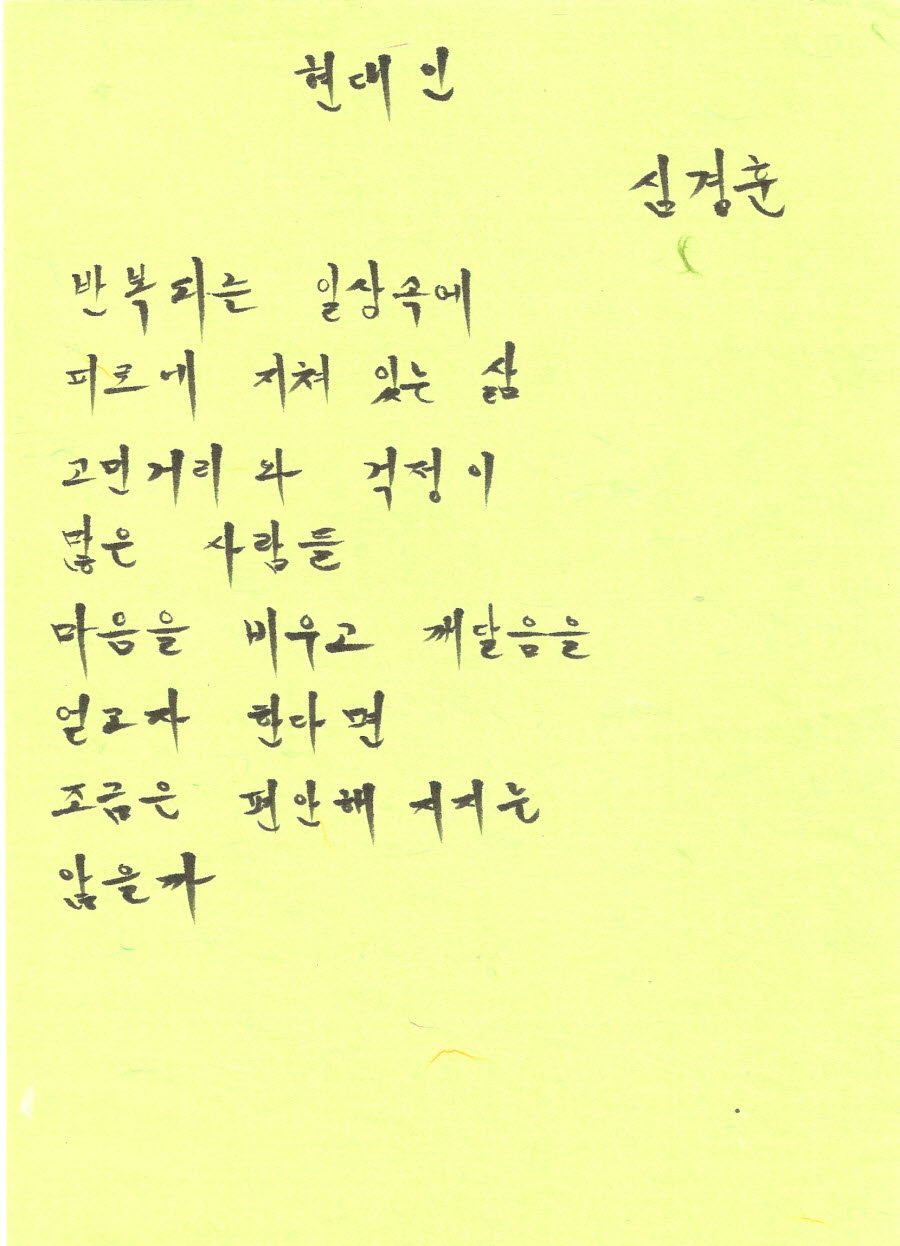 현대인
심경훈
반복되는 일상속에
피로에 지쳐 있는 삶
고민거리와 걱정이
많은 사람들
마음을 비우고 깨달음을
얻고자 한다면
조금은 편안해 지지는
않을까